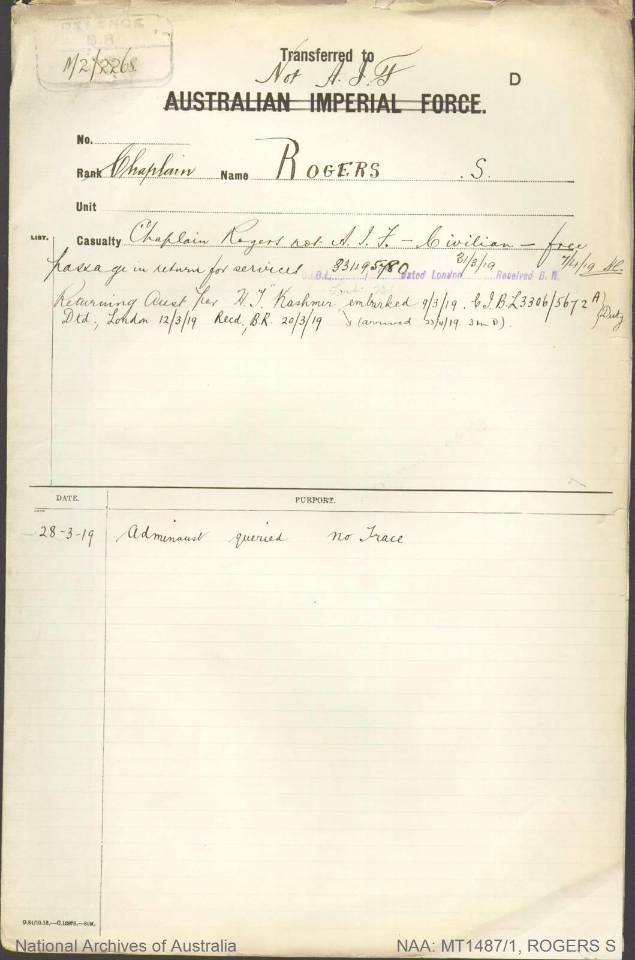 DEFENCE
B.R.
M/2/2268
Transferred to
Not A.I.F
D
AUSTRALIAN IMPERIAL FORCE.
No.
Rank Chaplain Name ROGERS S.
Unit
LIST.
Casualty Chaplain Rogers not A.I.F. – Civilian – free
passage in return for services B.L. 33119/5780 Dated London 31/3/19 Received B.R. 7/4/19
Returning Aust per H.T. "Kashmir" embarked 9/3/19. C.I.B.L3306/5672 A
Dtd, London 12/3/19 Recd, B.R. 20/3/19 (arrived 23/4/19. 3 M D). Duty
DATE. PURPORT.
28-3-19 Adminaust queried no Trace
D.84/10.18.—C.12873.—50M.
National Archives of Australia NAA: MT1487/1, ROGERS S